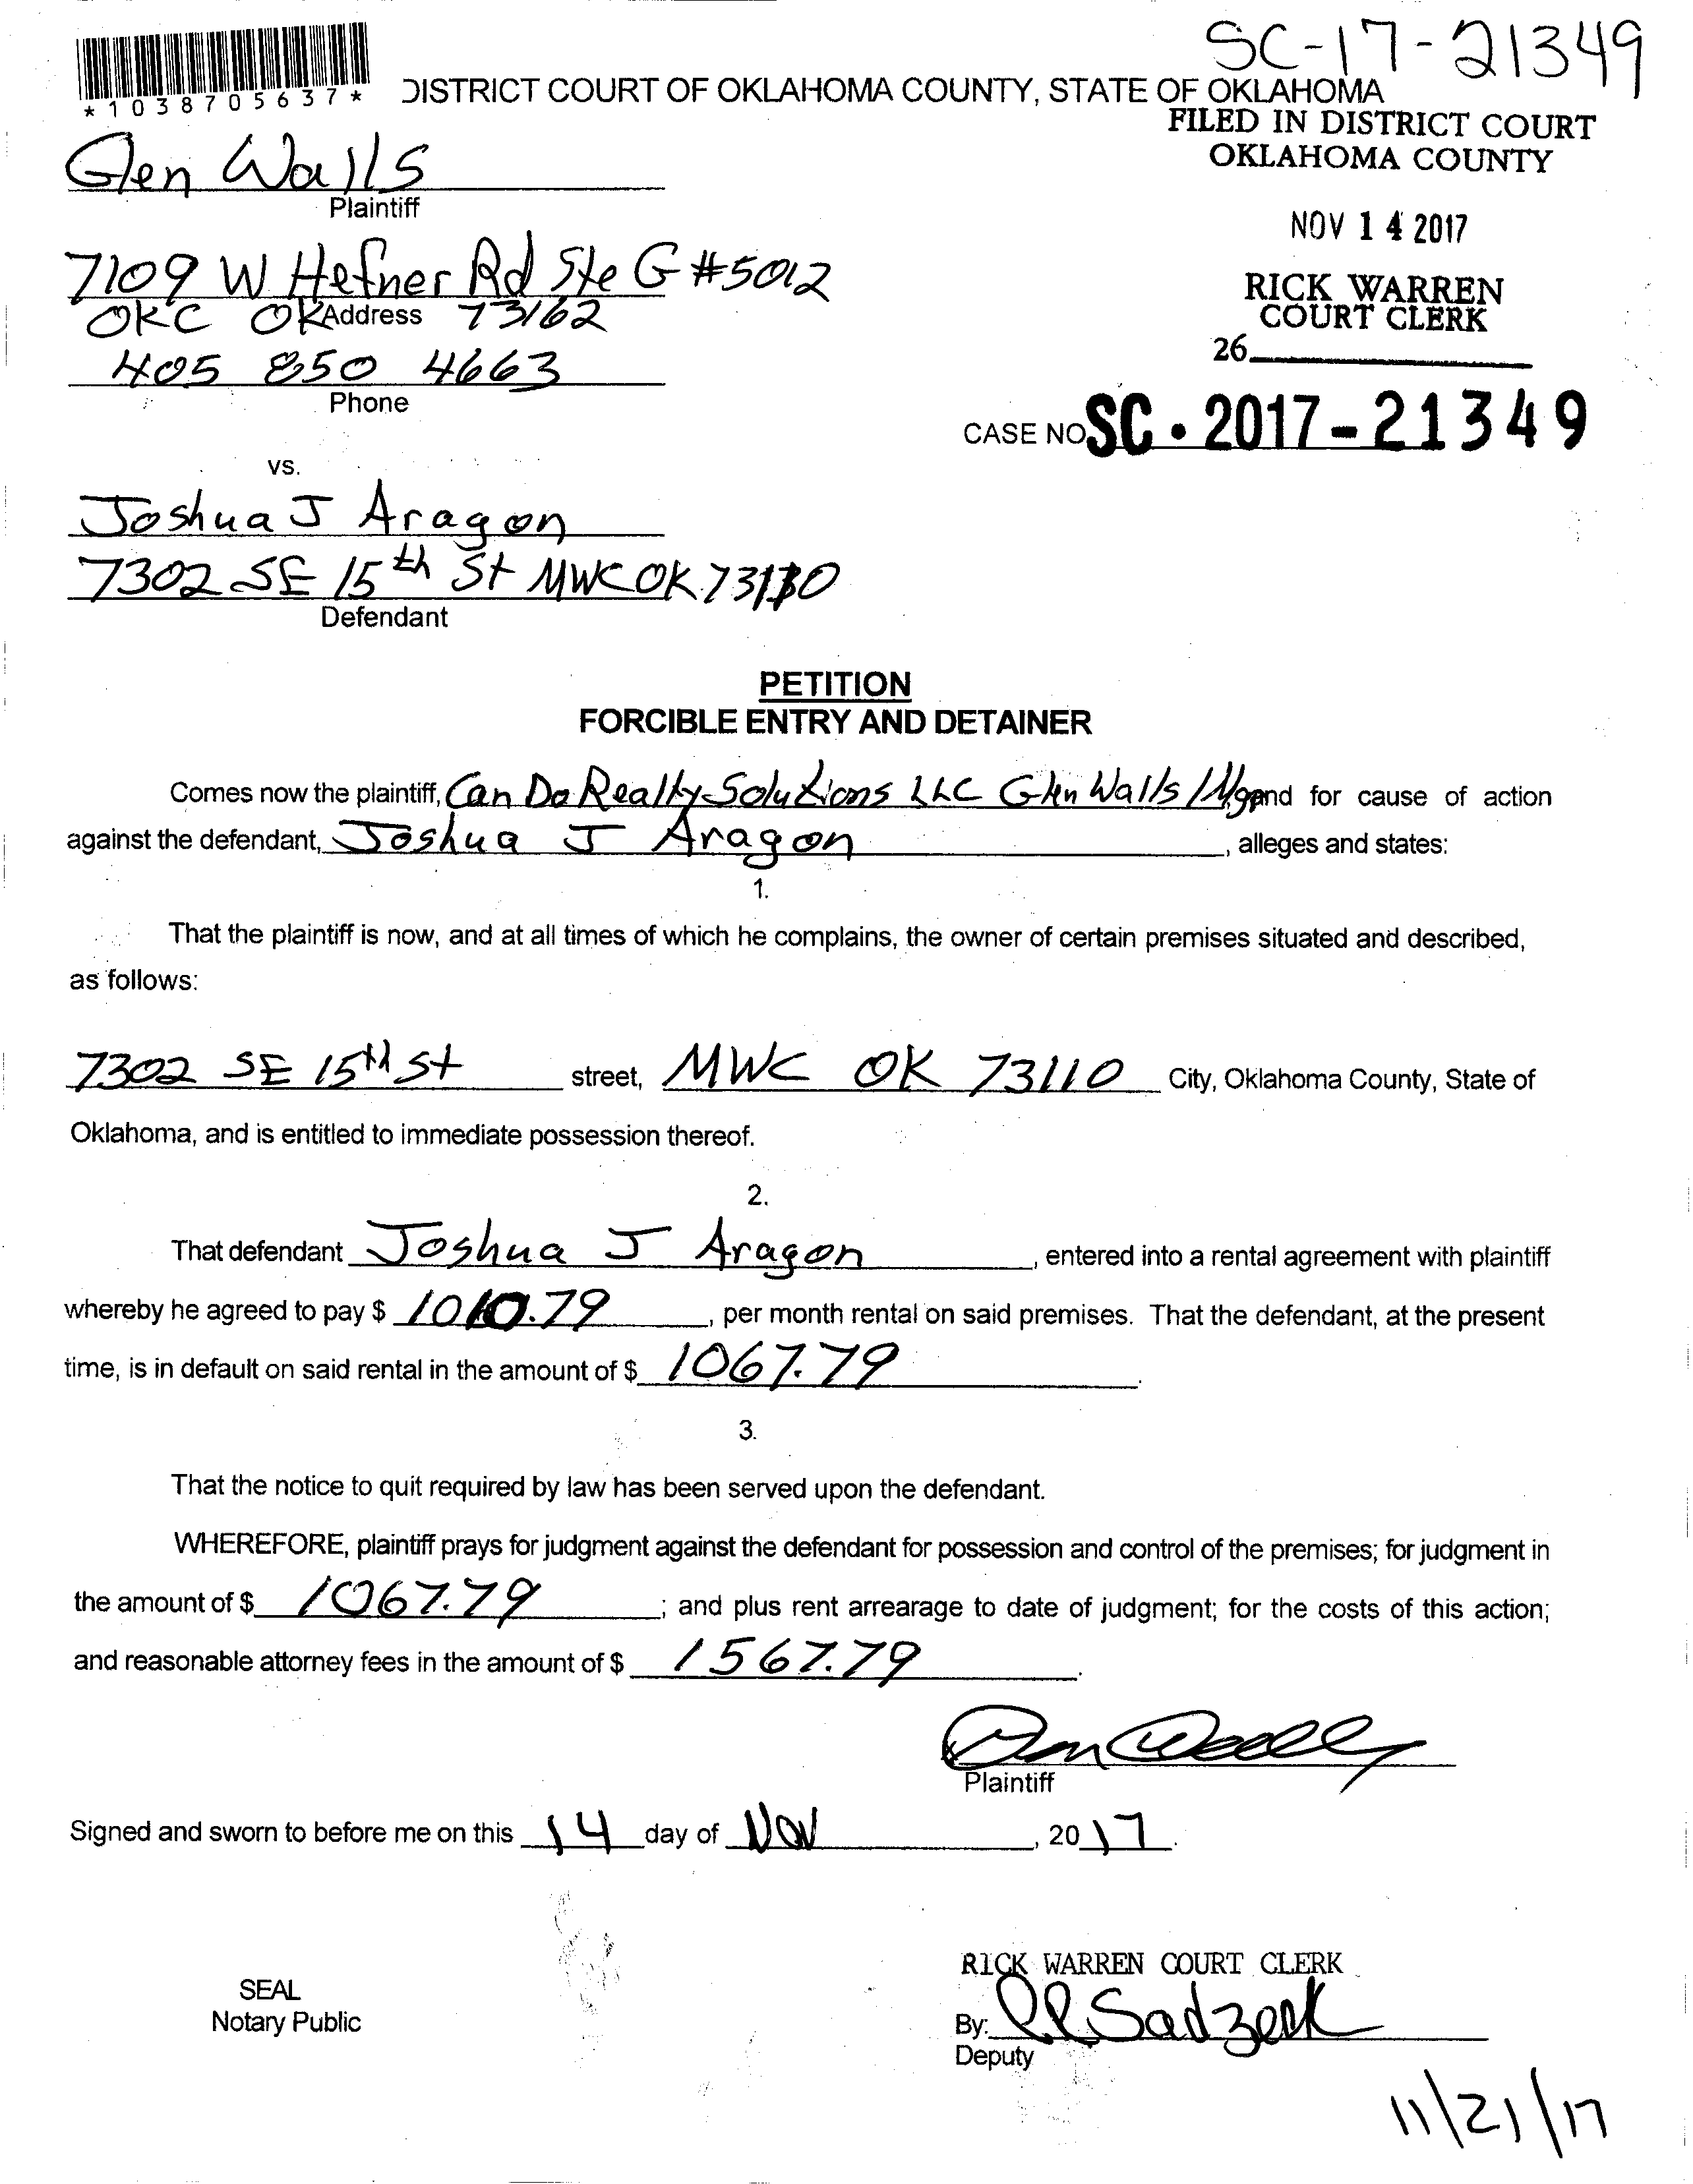 SC-17-21349
*1038705637*
DISTRICT COURT OF OKLAHOMA COUNTY, STATE OF OKLAHOMA
FILED IN DISTRICT COURT
OKLAHOMA COUNTY
Glen Walls
Plaintiff
NOV 14 2017
7109 W Hefner Rd Ste G #5012
RICK WARREN
COURT CLERK
OKC OK Address 73162
26
405 850 4663
Phone
CASE NO SC·2017-21349
vs.
Joshua J Aragon
7302 SE 15th St MWC OK 73110
Defendant
PETITION
FORCIBLE ENTRY AND DETAINER
Comes now the plaintiff, Can Do Realty Solutions LLC Glen Walls / and for cause of action
against the defendant, Joshua J Aragon, alleges and states:
1.
That the plaintiff is now, and at all times of which he complains, the owner of certain premises situated and described,
as follows:
7302 SE 15th St street, MWC OK 73110 City, Oklahoma County, State of
Oklahoma, and is entitled to immediate possession thereof.
2.
That defendant Joshua J Aragon, entered into a rental agreement with plaintiff
whereby he agreed to pay $ 1010.79, per month rental on said premises. That the defendant, at the present
time, is in default on said rental in the amount of $ 1067.79.
3.
That the notice to quit required by law has been served upon the defendant.
WHEREFORE, plaintiff prays for judgment against the defendant for possession and control of the premises; for judgment in
the amount of $ 1067.79; and plus rent arrearage to date of judgment; for the costs of this action;
and reasonable attorney fees in the amount of $ 1567.79.
Plaintiff
Signed and sworn to before me on this 14 day of Nov, 2017.
RICK WARREN COURT CLERK
SEAL
Notary Public
By:
Deputy
11/21/17